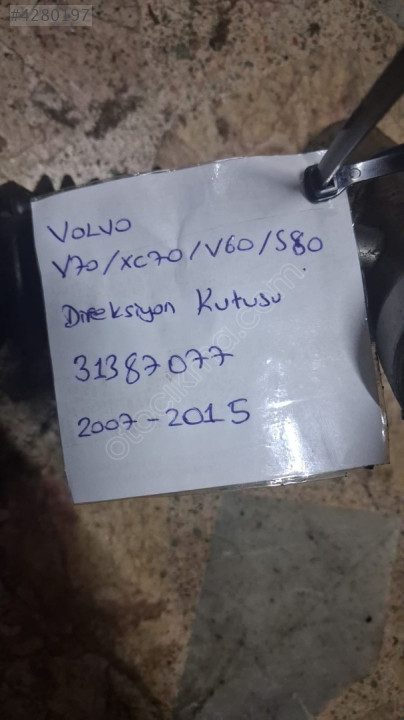 #4280197
VOLVO
V70/XC70/V60/S80
Direksiyon Kutusu
31387077
2007-2015